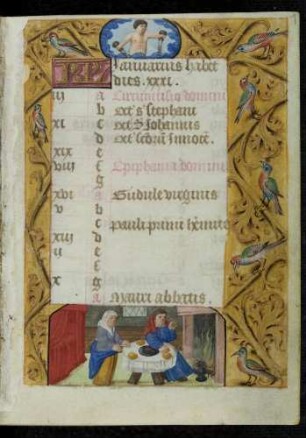 Januarius habet
dies. xxxi.
iii a Circumcisio domini
b oct' s stephani
xi c oct' S Johannis
d oct' scorum Innoce.
xix e
viii f Epiphania domini
g
xvi a Gudule virginis
v b
c pauli primi heremite
xiii d
ii e
f
x g
a Mauri abbatis.